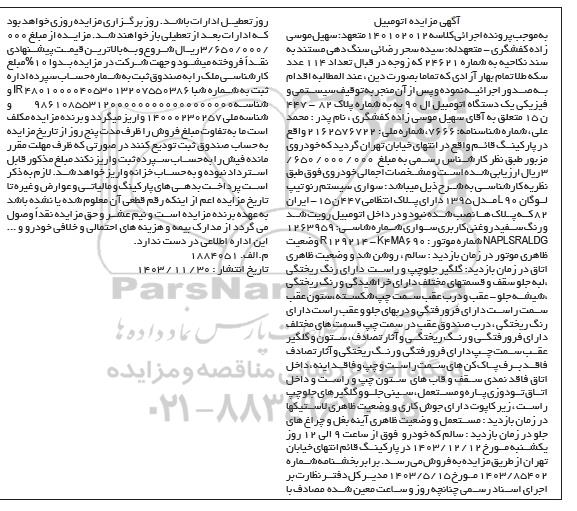 آگهی مزایده اتومبیل
به موجب پرونده اجرائی کلاسه ۱۴۰۱۰۲۰۱۲ متعهد: سهیل موسی
زاده کفشگری - متعهدله: سیده سحر رضائی سنگ دهی مستند به
سند نکاحیه به شماره ۲۴۶۲۱ که زوجه در قبال تعداد ۱۱۴ عدد
سکه طلا تمام بهار آزادی که تماما بصورت دین، عند المطالبه اقدام
به صدور اجرائیه نموده و پس از آن منجر به توقیف سیستمی و
فیزیکی یک دستگاه اتومبیل ال ۹۰ به شماره پلاک ۸۲ - ۴۴۷
ن ۱۵ متعلق به آقای سهیل موسی زاده کفشگری، نام پدر: محمد
علی، شماره شناسنامه: ۷۶۶۶، شماره ملی: ۲۱۶۲۵۷۶۷۲۲ واقع
در پارکینگ قائم واقع در انتهای خیابان تهران گردید که خودروی
مزبور طبق نظر کارشناس رسمی به مبلغ ۰۰۰/۰۰۰/۶۵۰/
۳ ریال ارزیابی شده است و مشخصات اجمالی خودروی فوق طبق
نظریه کارشناسی به شرح ذیل میباشد: سواری سیستم رنو تیپ
لوگان L۹۰ مدل ۱۳۹۵ دارای پلاک انتظامی ۴۴۷ن۱۵ - ایران
۸۲ که پلاک ها نصب شده نبود و در داخل اتومبیل رویت شد
و رنگ سفید روغنی کاربری سواری شماره شاسی: ۱۲۶۳۹۵۹
NAPLSRALDG شماره موتور: R۱۲۹۲۱۴-K۴MA۶۹۰ وضعیت
ظاهری موتور در زمان بازدید: سالم، روشن شد و وضعیت ظاهری
اتاق در زمان بازدید: گلگیر جلو چپ و راست دارای رنگ ریختگی
، لبه جلو سقف و قسمتهای مختلف دارای خراشیدگی و رنگ ریختگی
، شیشه جلو - عقب و درب عقب سمت چپ شکسته، ستون عقب
سمت راست دارای فرورفتگی و دربهای جلو و عقب راست دارای
رنگ ریختگی، درب صندوق عقب در سمت چپ قسمت های مختلف
دارای فرورفتگی و رنگ ریختگی و آثار تصادف، ستون و گلگیر
عقب سمت چپ دارای فرورفتگی و رنگ ریختگی و آثار تصادف
فاقد برف پاک کن های سمت راست و چپ و فاقد اینه، داخل
اتاق فاقد نمدی سقف و قاب های ستون چپ و راست و داخل
اتاق تودوزی پاره و مستعمل، سینی جلو و گلگیر های جلو چپ
راست، زیر کاپوت دارای جوش کاری و وضعیت ظاهری لاستیکها
در زمان بازدید: مستعمل و وضعیت ظاهری آینه بغل و چراغ های
جلو در زمان بازدید: سالم که خودرو فوق از ساعت ۹ الی ۱۲ روز
یکشنبه مورخ ۱۴۰۳/۱۲/۱۲ در پارکینگ قائم انتهای خیابان
تهران از طریق مزایده به فروش می رسد. برابر بخشنامه شماره
۱۴۰۳/۸۵۴۰۲ مورخ ۱۴۰۳/۵/۱۵ مدیر کل دفتر نظارت بر
اجرای اسناد رسمی چنانچه روز و ساعت معین شده مصادف با
روز تعطیل ادارات باشد. روز برگزاری مزایده روزی خواهد بود
که ادارات بعد از تعطیلی باز خواهند شد. مزایده از مبلغ ۰۰۰
/۰۰۰/۳/۶۵۰ ریال شروع و به بالاترین قیمت پیشنهادی
نقدا فروخته میشود و جهت شرکت در مزایده بدوا ۱۰٪ مبلغ
کارشناسی ملک را به صندوق ثبت به شماره حساب سپرده اداره
ثبت به شماره شبا IR۴۸۰۱۰۰۰۰۴۰۵۳۰۱۳۲۰۷۵۵۰۳۸۶ و
شناسه ۹۸۶۱۰۸۵۵۳۱۲۰۰۰۰۰۰۰۰۰۰۰۰۰۰۰۰۰ و
شناسه ملی ۱۴۰۰۰۲۳۰۲۵۷ واریز میگردد و برنده مزایده مکلف
است ما به تفاوت مبلغ فروش را ظرف مدت پنج روز از تاریخ مزایده
به حساب صندوق ثبت تودیع کنند در صورتی که ظرف مهلت مقرر
مانده فیش را به حساب سپرده ثبت واریز نکند مبلغ مذکور قابل
استرداد نبوده و به حساب خزانه واریز خواهد شد. لازم به ذکر
است پرداخت بدهی های پارکینگ و مالیاتی و عوارض و غیره تا
تاریخ مزایده اعم از اینکه رقم قطعی آن معلوم شده یا نشده باشد
به عهده برنده مزایده است و نیم عشر و حق مزایده نقدا وصول
می گردد از مدارک بیمه و هزینه های احتمالی و خلافی خودرو و ...
این اداره اطلاعی در دست ندارد.
م.الف. ۱۸۸۴۰۵۱
تاریخ انتشار: ۱۴۰۳/۱۱/۳۰
ParsNamadData
پایگاه اطلاع رسانی مناقصه و مزایده